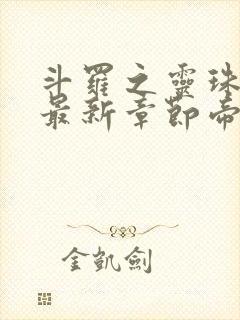 斗羅之靈珠
最新章節帝
金凱劍